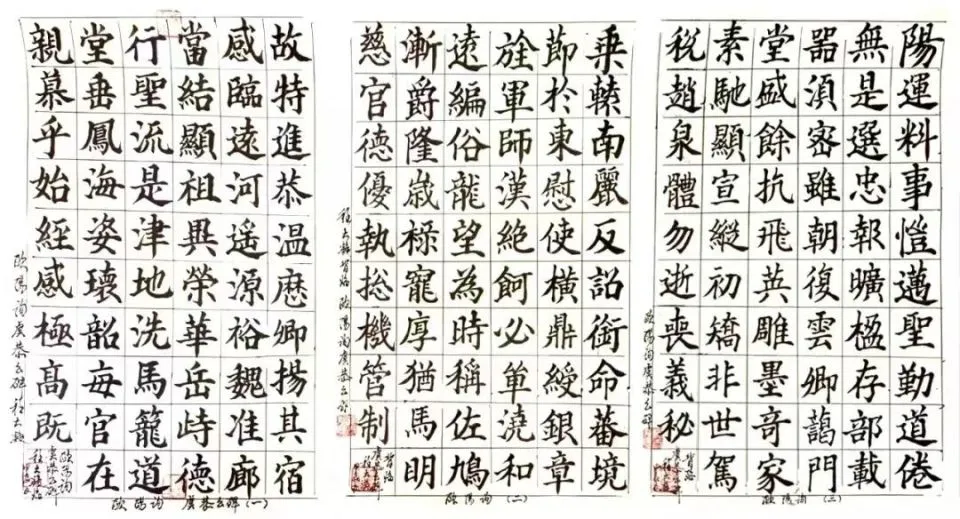 故特進恭温厯卿揚其宿
感臨遠河遥源裕魏准廊
當結顯祖異榮華岳峙德
行聖流是津地洗馬籠道
堂垂鳳海姿瓌韶每官在
親慕乎始經感極高既
歐陽詢虞恭公碑
歐陽詢 虞恭公碑（一）
乗轅南麗反詔銜命蕃境
節於東慰使横鼎綬銀章
旌軍師漢絶餉必單澆和
遠編俗龍望為時稱佐鳩
漸爵隆歳禄寵厚猶馬明
慈官德優執揔機管制
歐陽詢虞恭公碑
歐陽詢（二）
陽運料事愷邁聖勤道倦
無是選忠報曠楹存部載
器須密雖朝復雲卿藹門
堂盛餘抗飛英雕墨奇家
素馳顯宣縱初矯非世駕
税趙泉體勿逝喪義秘
歐陽詢虞恭公碑
歐陽詢（三）